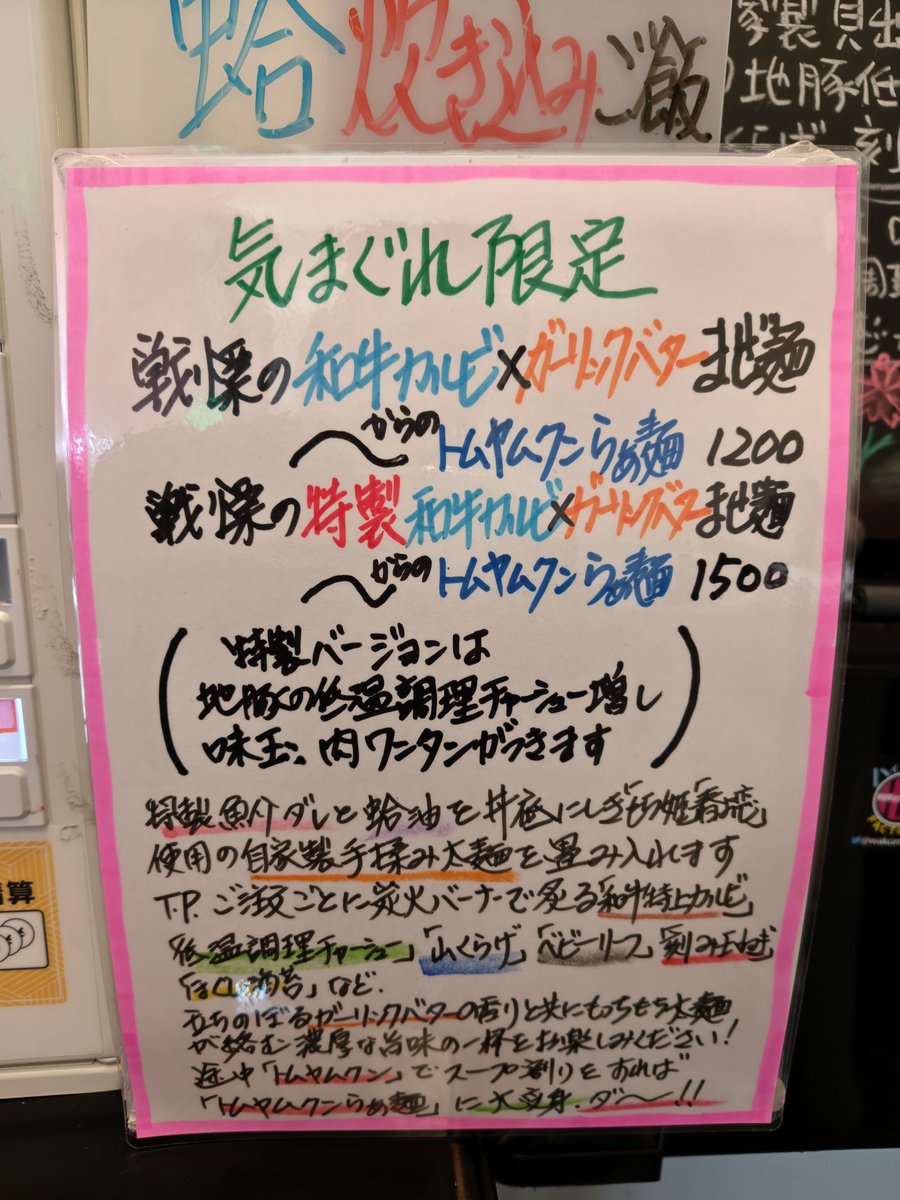 蛤炊き込みご飯
気まぐれ限定
戦慄の和牛カルビ×ガーリックバターまぜ麺
〜からのトムヤムクンらぁ麺 1200
戦慄の特製和牛カルビ×ガーリックバターまぜ麺
〜からのトムヤムクンらぁ麺 1500
(特製バージョンは
地豚の低温調理チャーシュー増し
味玉、肉ワンタンがつきます)
特製魚介ダレと蛤油を丼底にしき「もち姫」「春恋」
使用の自家製手揉み太麺を畳み入れます
T.P.ご注文ごとに炭火バーナーで炙る「和牛特上カルビ」
「低温調理チャーシュー」「山くらげ」「ベビーリーフ」「刻み玉ねぎ」
「海苔」など.
立ちのぼるガーリックバターの香りと共にもっちもち太麺
が絡む濃厚な旨味の一杯をお楽しみください!
途中「トムヤムクン」でスープ割りをすれば
「トムヤムクンらぁ麺」に大変身.ダ〜!!
製貝出
地豚低
刻
精算